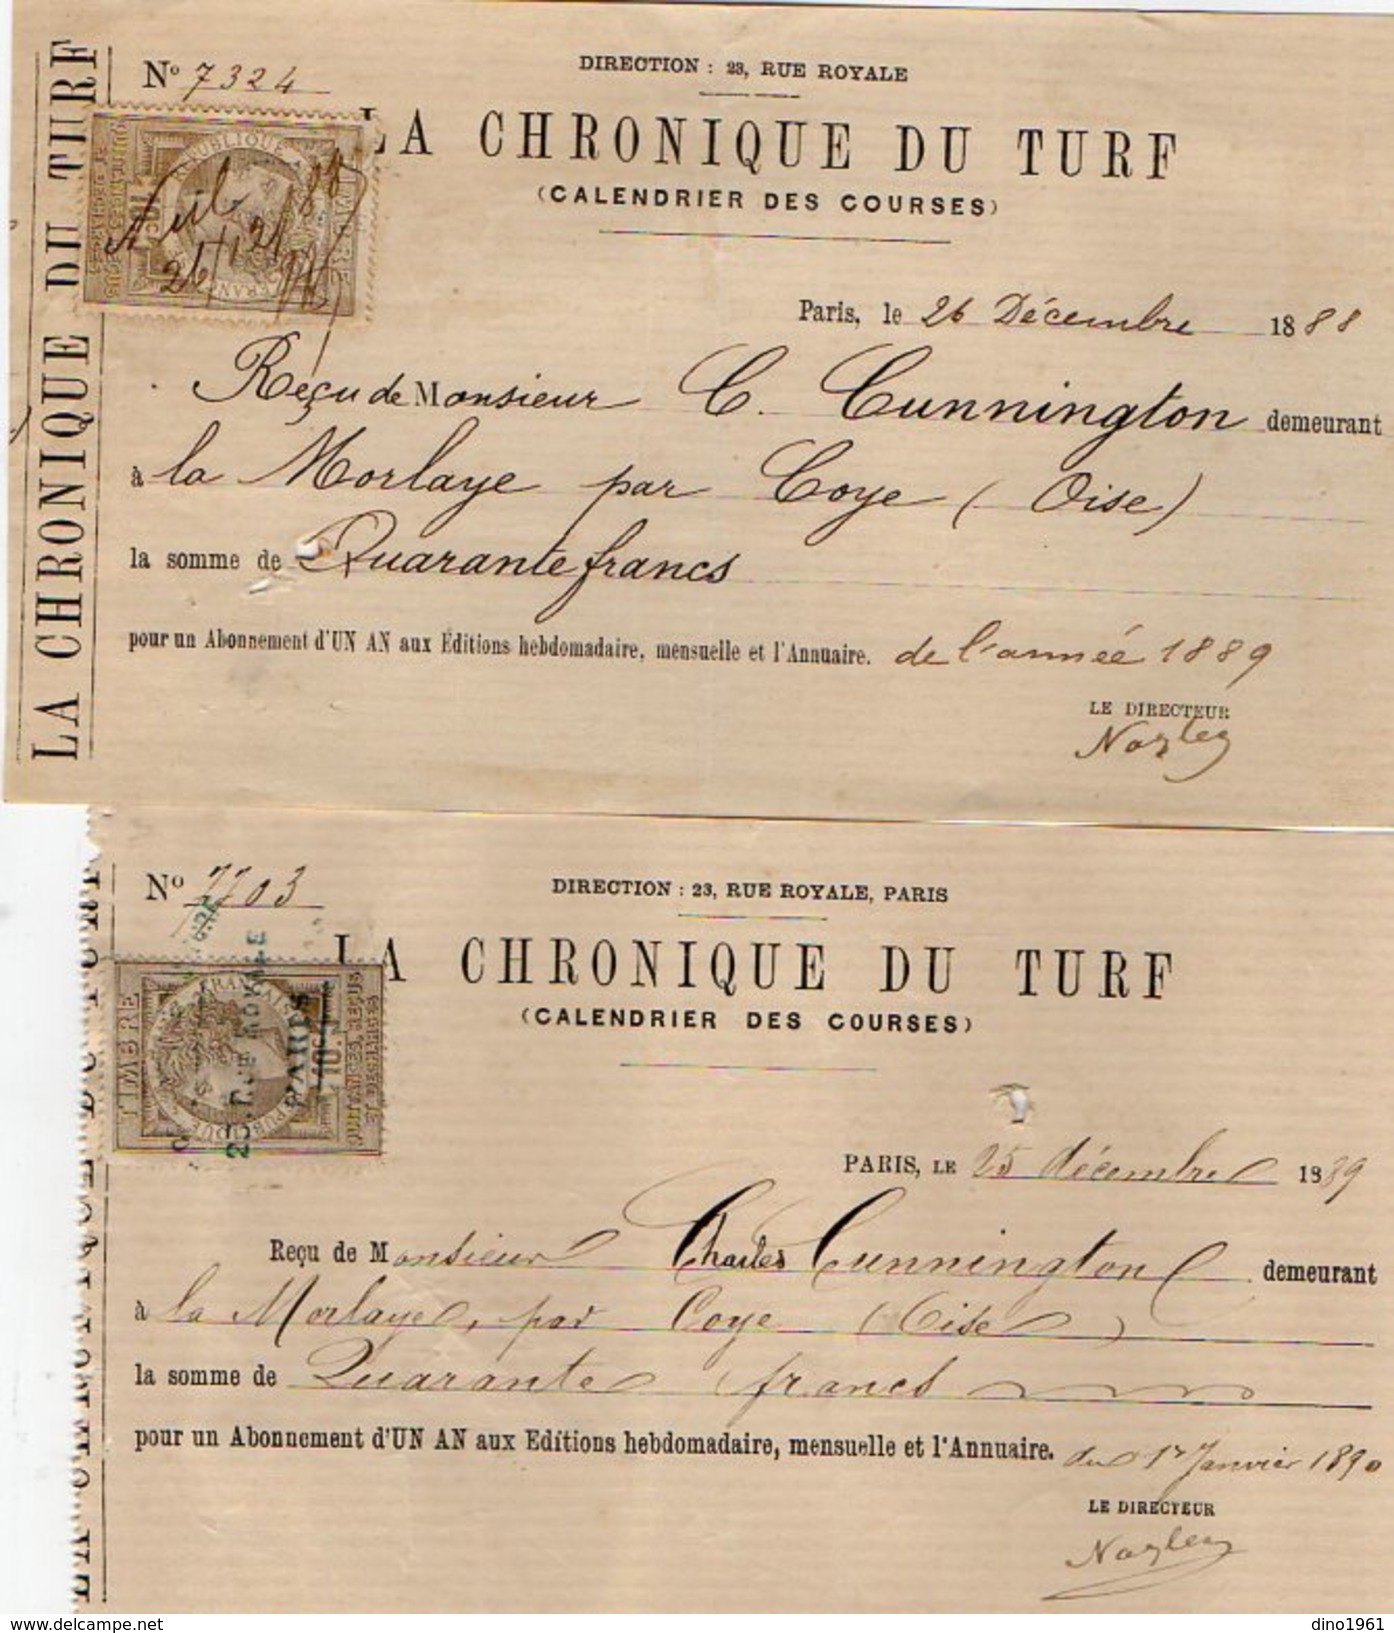 LA CHRONIQUE DU TURF
N° 7324
DIRECTION : 23, RUE ROYALE
LA CHRONIQUE DU TURF
(CALENDRIER DES COURSES)
Paris, le 26 Décembre 1888
Reçu de Monsieur C. Cunnington demeurant
à la Morlaye par Coye (Oise)
la somme de Quarante francs
pour un Abonnement d'UN AN aux Éditions hebdomadaire, mensuelle et l'Annuaire. de l'année 1889
LE DIRECTEUR
N° 7703
DIRECTION : 23, RUE ROYALE, PARIS
LA CHRONIQUE DU TURF
(CALENDRIER DES COURSES)
TIMBRE
QUITTANCES, REÇUS
ET DÉCHARGES
23, RUE ROYALE
PARIS
PARIS, LE 25 décembre 1889
Reçu de Monsieur Charles Cunnington demeurant
à la Morlaye, par Coye (Oise)
la somme de Quarante francs
pour un Abonnement d'UN AN aux Editions hebdomadaire, mensuelle et l'Annuaire. du 1er Janvier 1890
LE DIRECTEUR
www.delcampe.net
dino1961